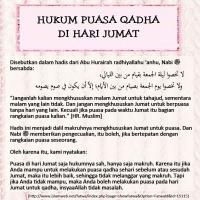 HUKUM PUASA QADHA
DI HARI JUMAT
Disebutkan dalam hadis dari Abu Hurairah radhiyallahu 'anhu, Nabi ﷺ
bersabda:
لا تخصوا ليلة الجمعة بقيام من بين الليالي،
ولا تخصوا يوم الجمعة بصيام من بين الأيام إلا أن يكون في صوم يصومه
"Janganlah kalian mengkhususkan malam Jumat untuk tahajud, sementara
malam yang lain tidak. Dan jangan mengkhususkan Jumat untuk berpuasa
tanpa hari yang lain. Kecuali jika puasa pada waktu Jumat itu bagian
rangkaian puasa kalian." [HR. Muslim]
Hadis ini menjadi dalil makruhnya mengkhususkan Jumat untuk puasa. Dan
Nabi ﷺ memberikan pengecualian, itu boleh, jika bertepatan dengan
rangkaian puasa seseorang.
Oleh karena itu, kami nyatakan:
Puasa di hari Jumat saja hukumnya sah, hanya saja makruh. Karena itu jika
Anda mampu untuk melakukan puasa qadha sehari sebelum atau sesudah
Jumat, maka itu lebih baik, sehingga tidak melanggar yang makruh. Tapi
jika Anda tidak mampu, maka Anda boleh melakukan puasa pada hari
Jumat untuk qadha, insyaAllah tidak masalah.